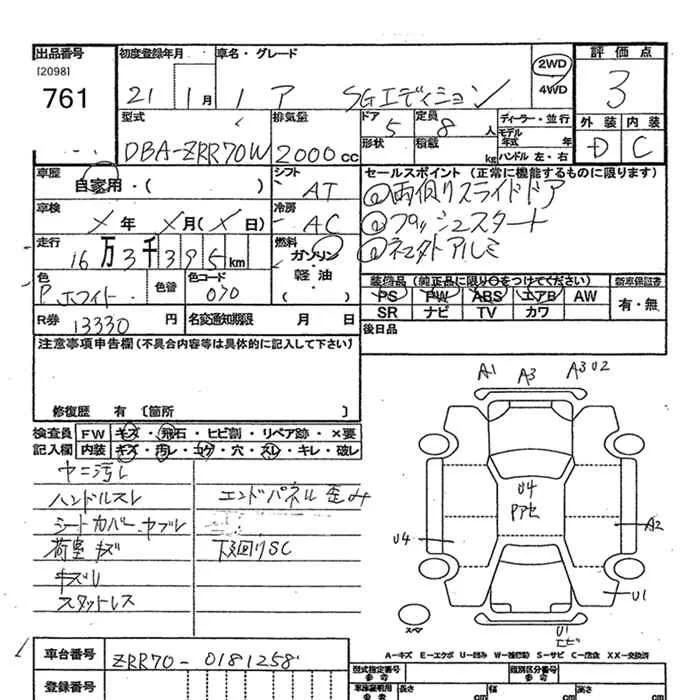 出品番号 初度登録年月 車名・グレード 評価点
[2098] 2WD
761 21 1月 ア SGエディション 4WD 3
型式 排気量 ドア 定員 ディーラー・並行 外装 内装
5 8人 モデル年式 年
DBA-ZRR70W 2000cc 形状 積載 kg ハンドル 左・右 D C
車歴 シフト セールスポイント(正常に機能するものに限ります)
自家用・( ) AT ①両側スライドドア
車検 冷房 ②プッシュスタート
×年 ×月(×日) AC ③ネエタトアルミ
走行 燃料
16万3千395km ガソリン・軽油・( )
色 色替 色コード 装備品(純正品に限り○をつけてください) 新車保証書
P.ホワイト 070 PS PW ABS エアB AW 有・無
SR ナビ TV カワ
R券 13330円 名変通知期限 月 日 後日品
注意事項申告欄(不具合内容等は具体的に記入して下さい)
A1 A3 A3 U2
修復歴 有〔箇所 〕
検査員 FW キズ・飛石・ヒビ割・リペア跡・×要
記入欄 内装 キズ・汚レ・コゲ・穴・スレ・キレ・破レ
ヤニ汚レ
ハンドルスレ エンドパネル歪み
U4
シートカバー.ヤブレ
荷室キズ 下廻りSC
U4 A2
スタットレス
U1
スペア
U1
エビ
A-キズ E-エクボ U-凹み W-補修跡 S-サビ C-腐食 XX-交換済
車台番号 ZRR70-0181258
型式指定番号 参考 類別区分番号 参考
登録番号 車庫証明用 参考 長さ cm 幅 cm 高さ cm